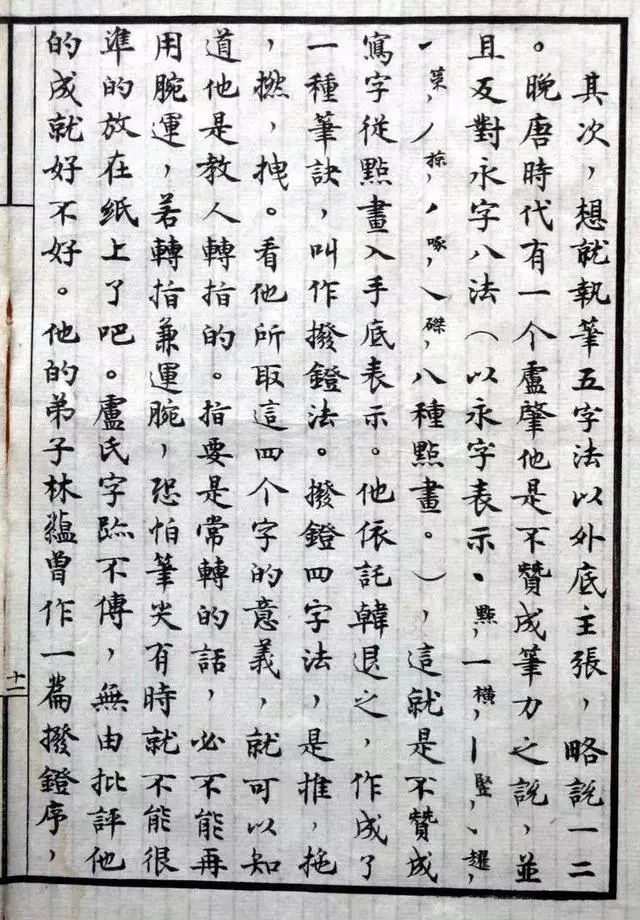 其次，想就執筆五字法以外底主張，略說一二
。晚唐時代有一个盧肇他是不贊成筆力之說，並
且反對永字八法（以永字表示丶點，一橫，丨竪，㇀趯，
㇀策，丿掠，丿啄，㇏磔，八種點畫。），這就是不贊成
寫字從點畫入手底表示。他依託韓退之，作成了
一種筆訣，叫作撥鐙法。撥鐙四字法，是推，拖
，撚，拽。看他所取這四个字的意義，就可以知
道他是教人轉指的。指要是常轉的話，必不能再
用腕運，若轉指兼運腕，恐怕筆尖有時就不能很
準的放在纸上了吧。盧氏字跡不傳，無由批評他
的成就好不好。他的弟子林蕴曾作一篇撥鐙序，
十二